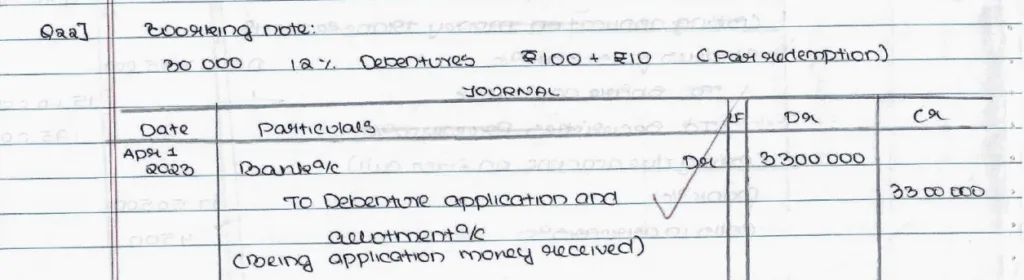 Q22] Working note:
30 000 12 % Debentures ₹100 + ₹10 (Par redemption)
JOURNAL
Date Particulars LF Dr Cr
Apr 1
2023 Bank a/c Dr 3300 000
To Debenture application and 3300000
allotment a/c
(Being application money received)